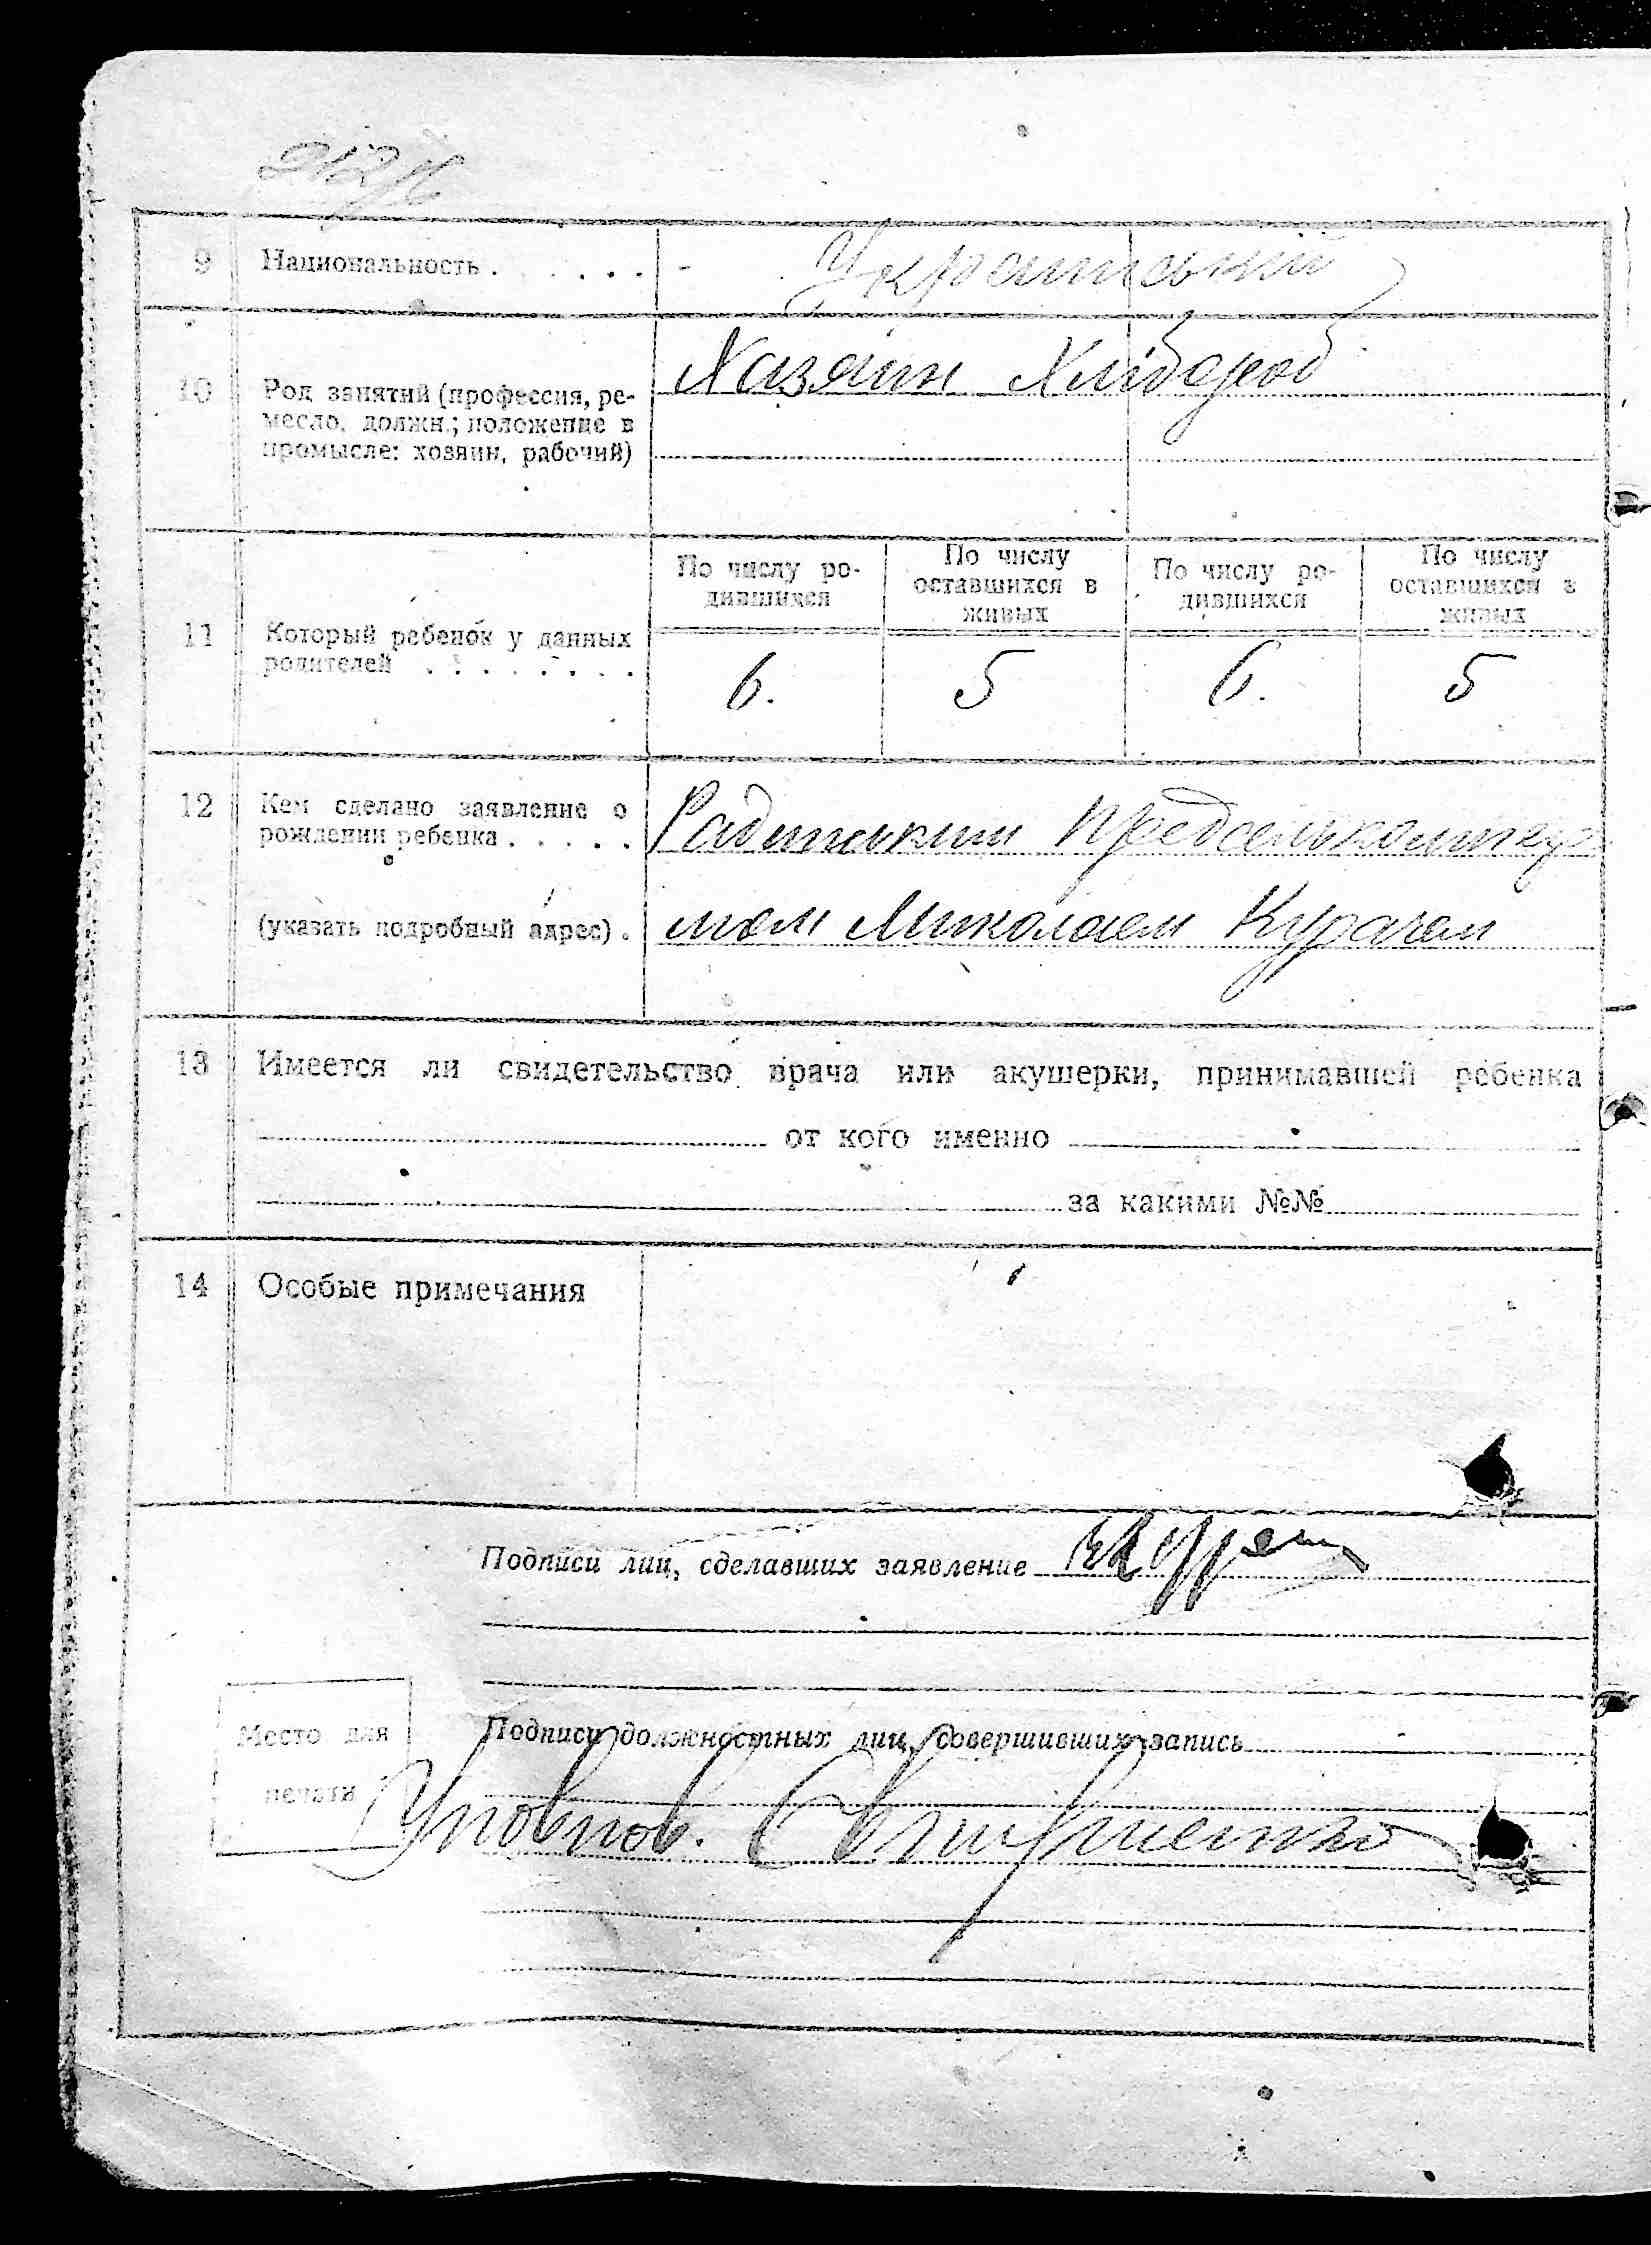 9 Национальность . . . . . . - Украинський
10 Род занятий (профессия, ре-
месло, должн.; положение в
промысле: хозяин, рабочий)
Хазяин Хлібороб
11 Который ребенок у данных
родителей . . . . . . . .
По числу ро-
дившихся
По числу
оставшихся в
живых
По числу ро-
дившихся
По числу
оставшихся в
живых
6. 5 6. 5
12 Кем сделано заявление о
рождении ребенка . . . . .
(указать подробный адрес) .
Николаем Курачем
13 Имеется ли свидетельство врача или акушерки, принимавшей ребенка
от кого именно
за какими №№
14 Особые примечания
Подписи лиц, сделавших заявление
Место для
печати
Подписи должностных лиц, совершивших запись
Уповнов.